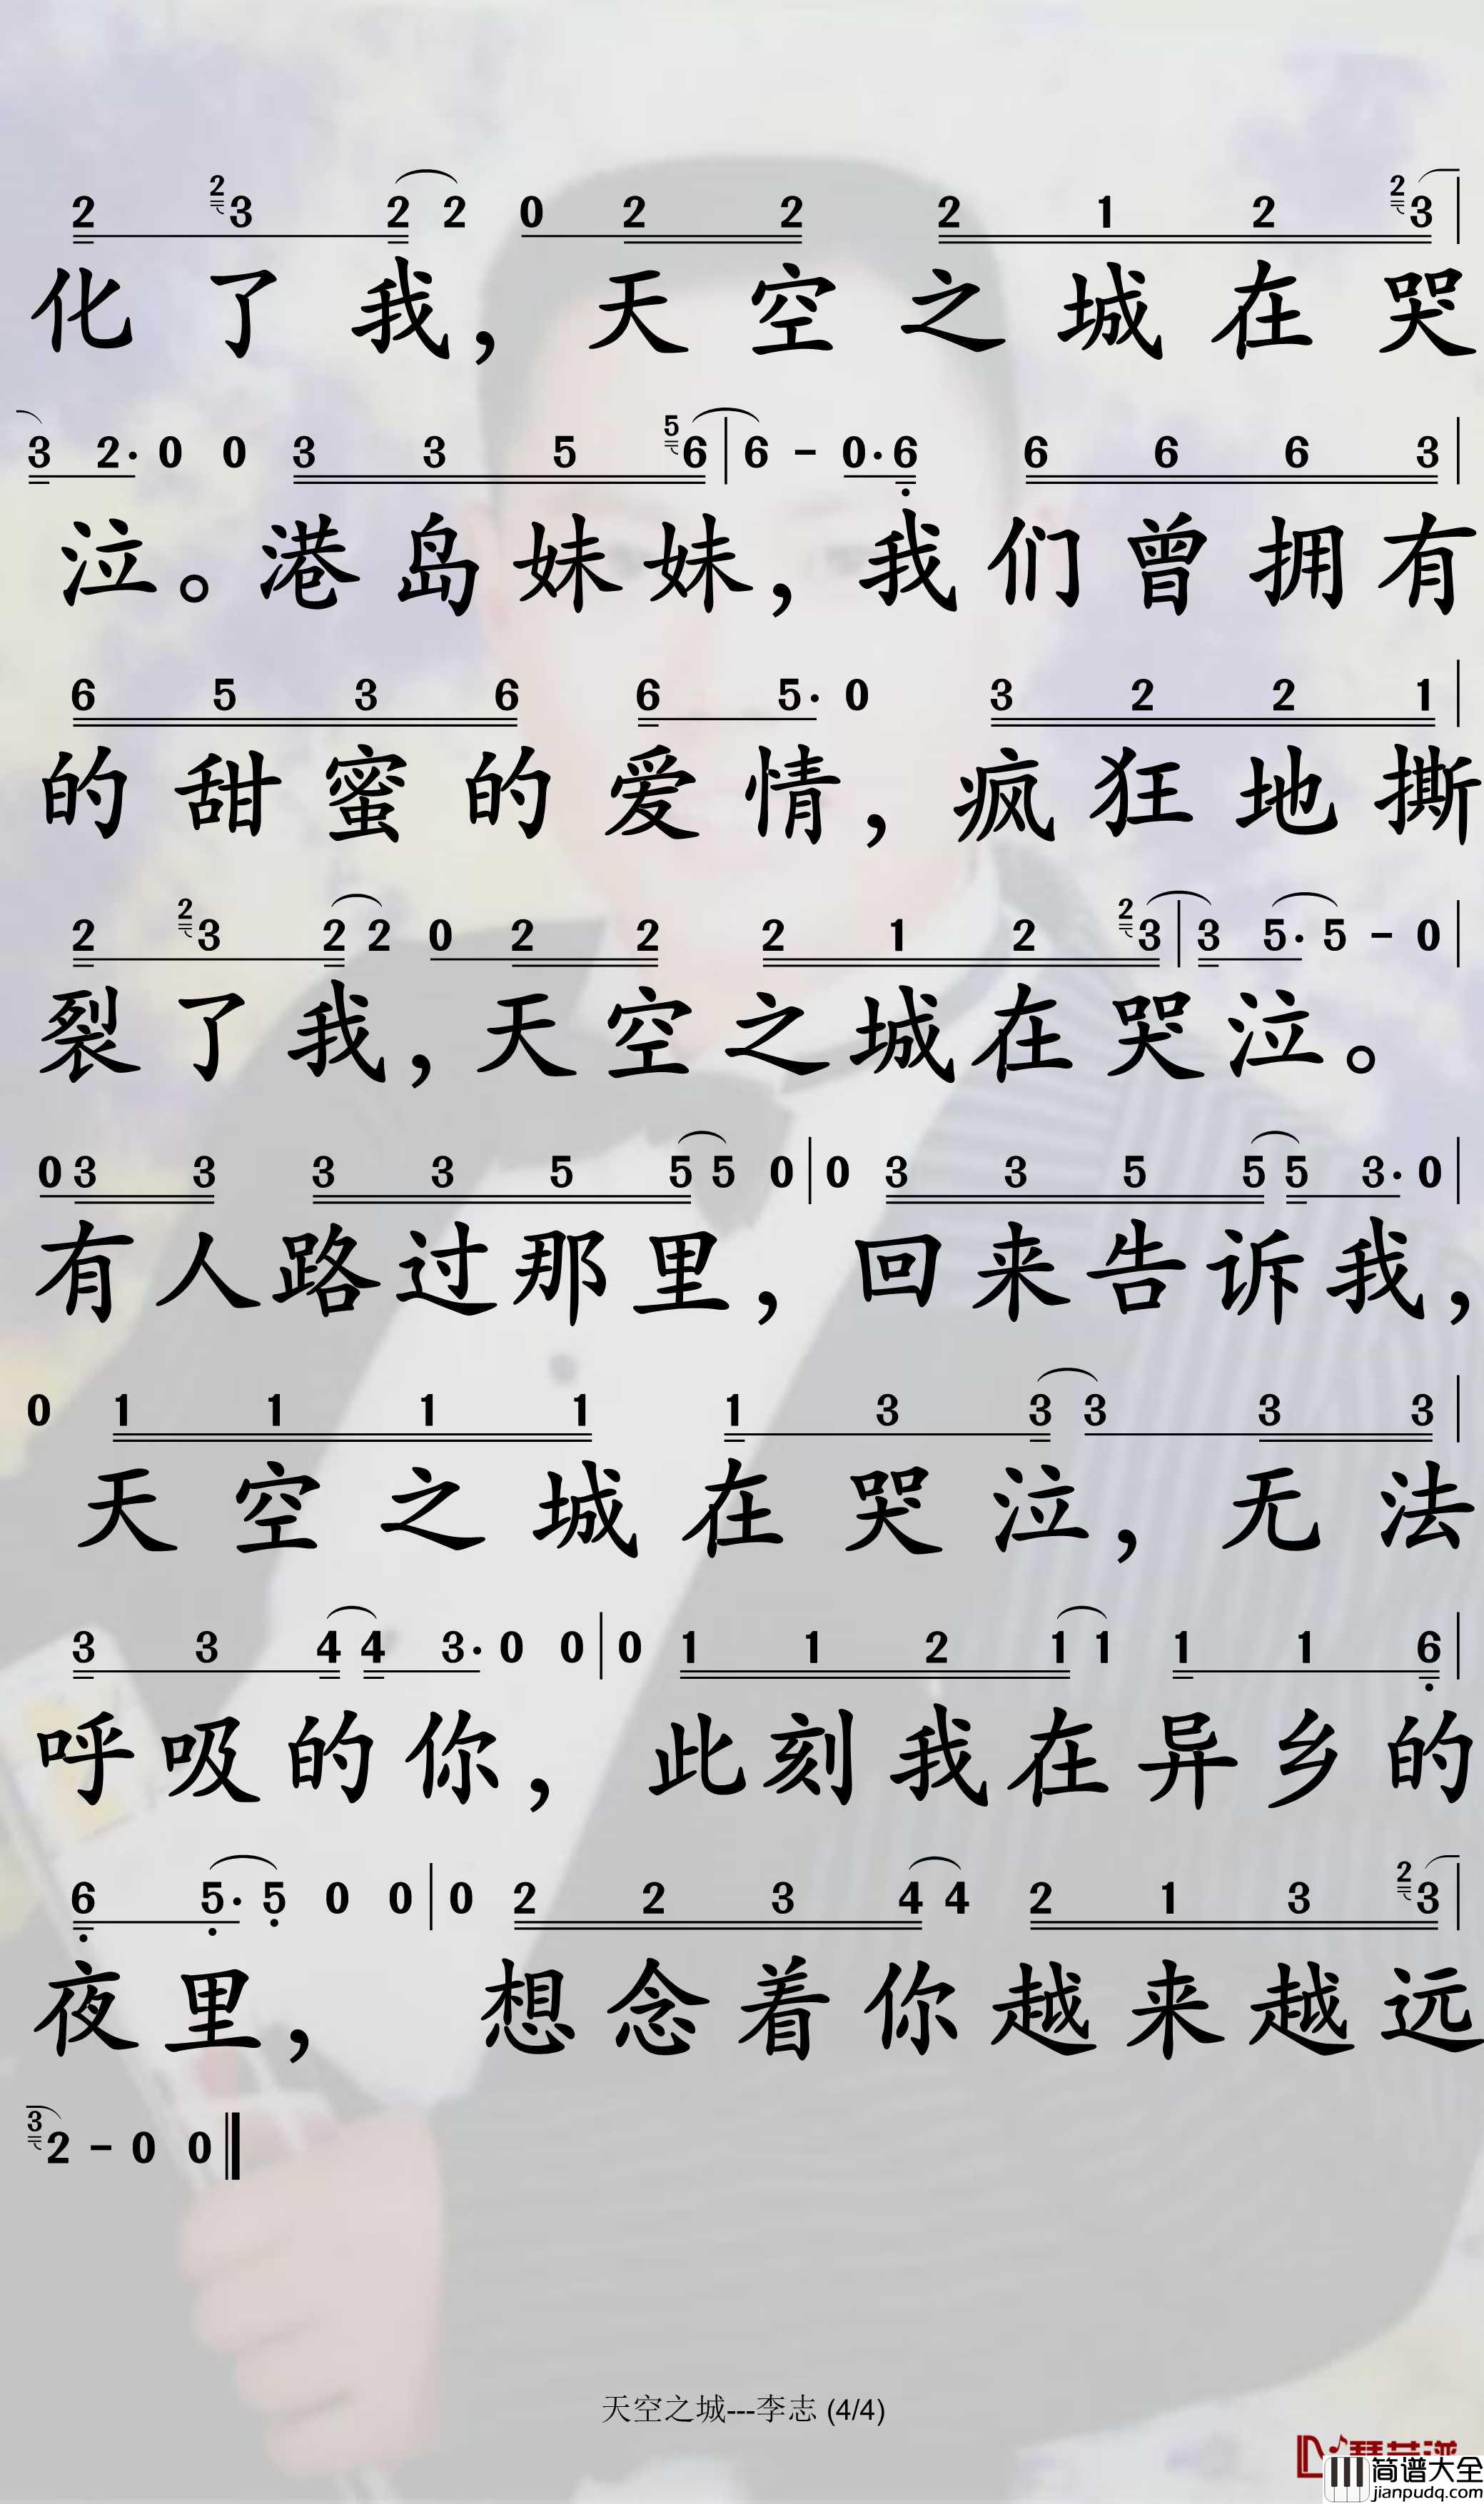 2 2 3 2 2 0 2 2 2 1 2 2 3
化了我，天空之城在哭
3 2· 0 0 3 3 5 5 6 | 6 - 0· 6 6 6 6 3 |
泣。港岛妹妹，我们曾拥有
6 5 3 6 6 5· 0 3 2 2 1 |
的甜蜜的爱情，疯狂地撕
2 2 3 2 2 0 2 2 2 1 2 2 3 | 3 5· 5 - 0 |
裂了我，天空之城在哭泣。
0 3 3 3 3 5 5 5 0 | 0 3 3 5 5 5 3· 0 |
有人路过那里，回来告诉我，
0 1 1 1 1 1 3 3 3 3 3 |
天空之城在哭泣，无法
3 3 4 4 3· 0 0 | 0 1 1 2 1 1 1 1 6 |
呼吸的你，此刻我在异乡的
6 5· 5 0 0 | 0 2 2 3 4 4 2 1 3 2 3 |
夜里，想念着你越来越远
3 2 - 0 0
天空之城---李志 (4/4)
简谱大全
jianpudq.com